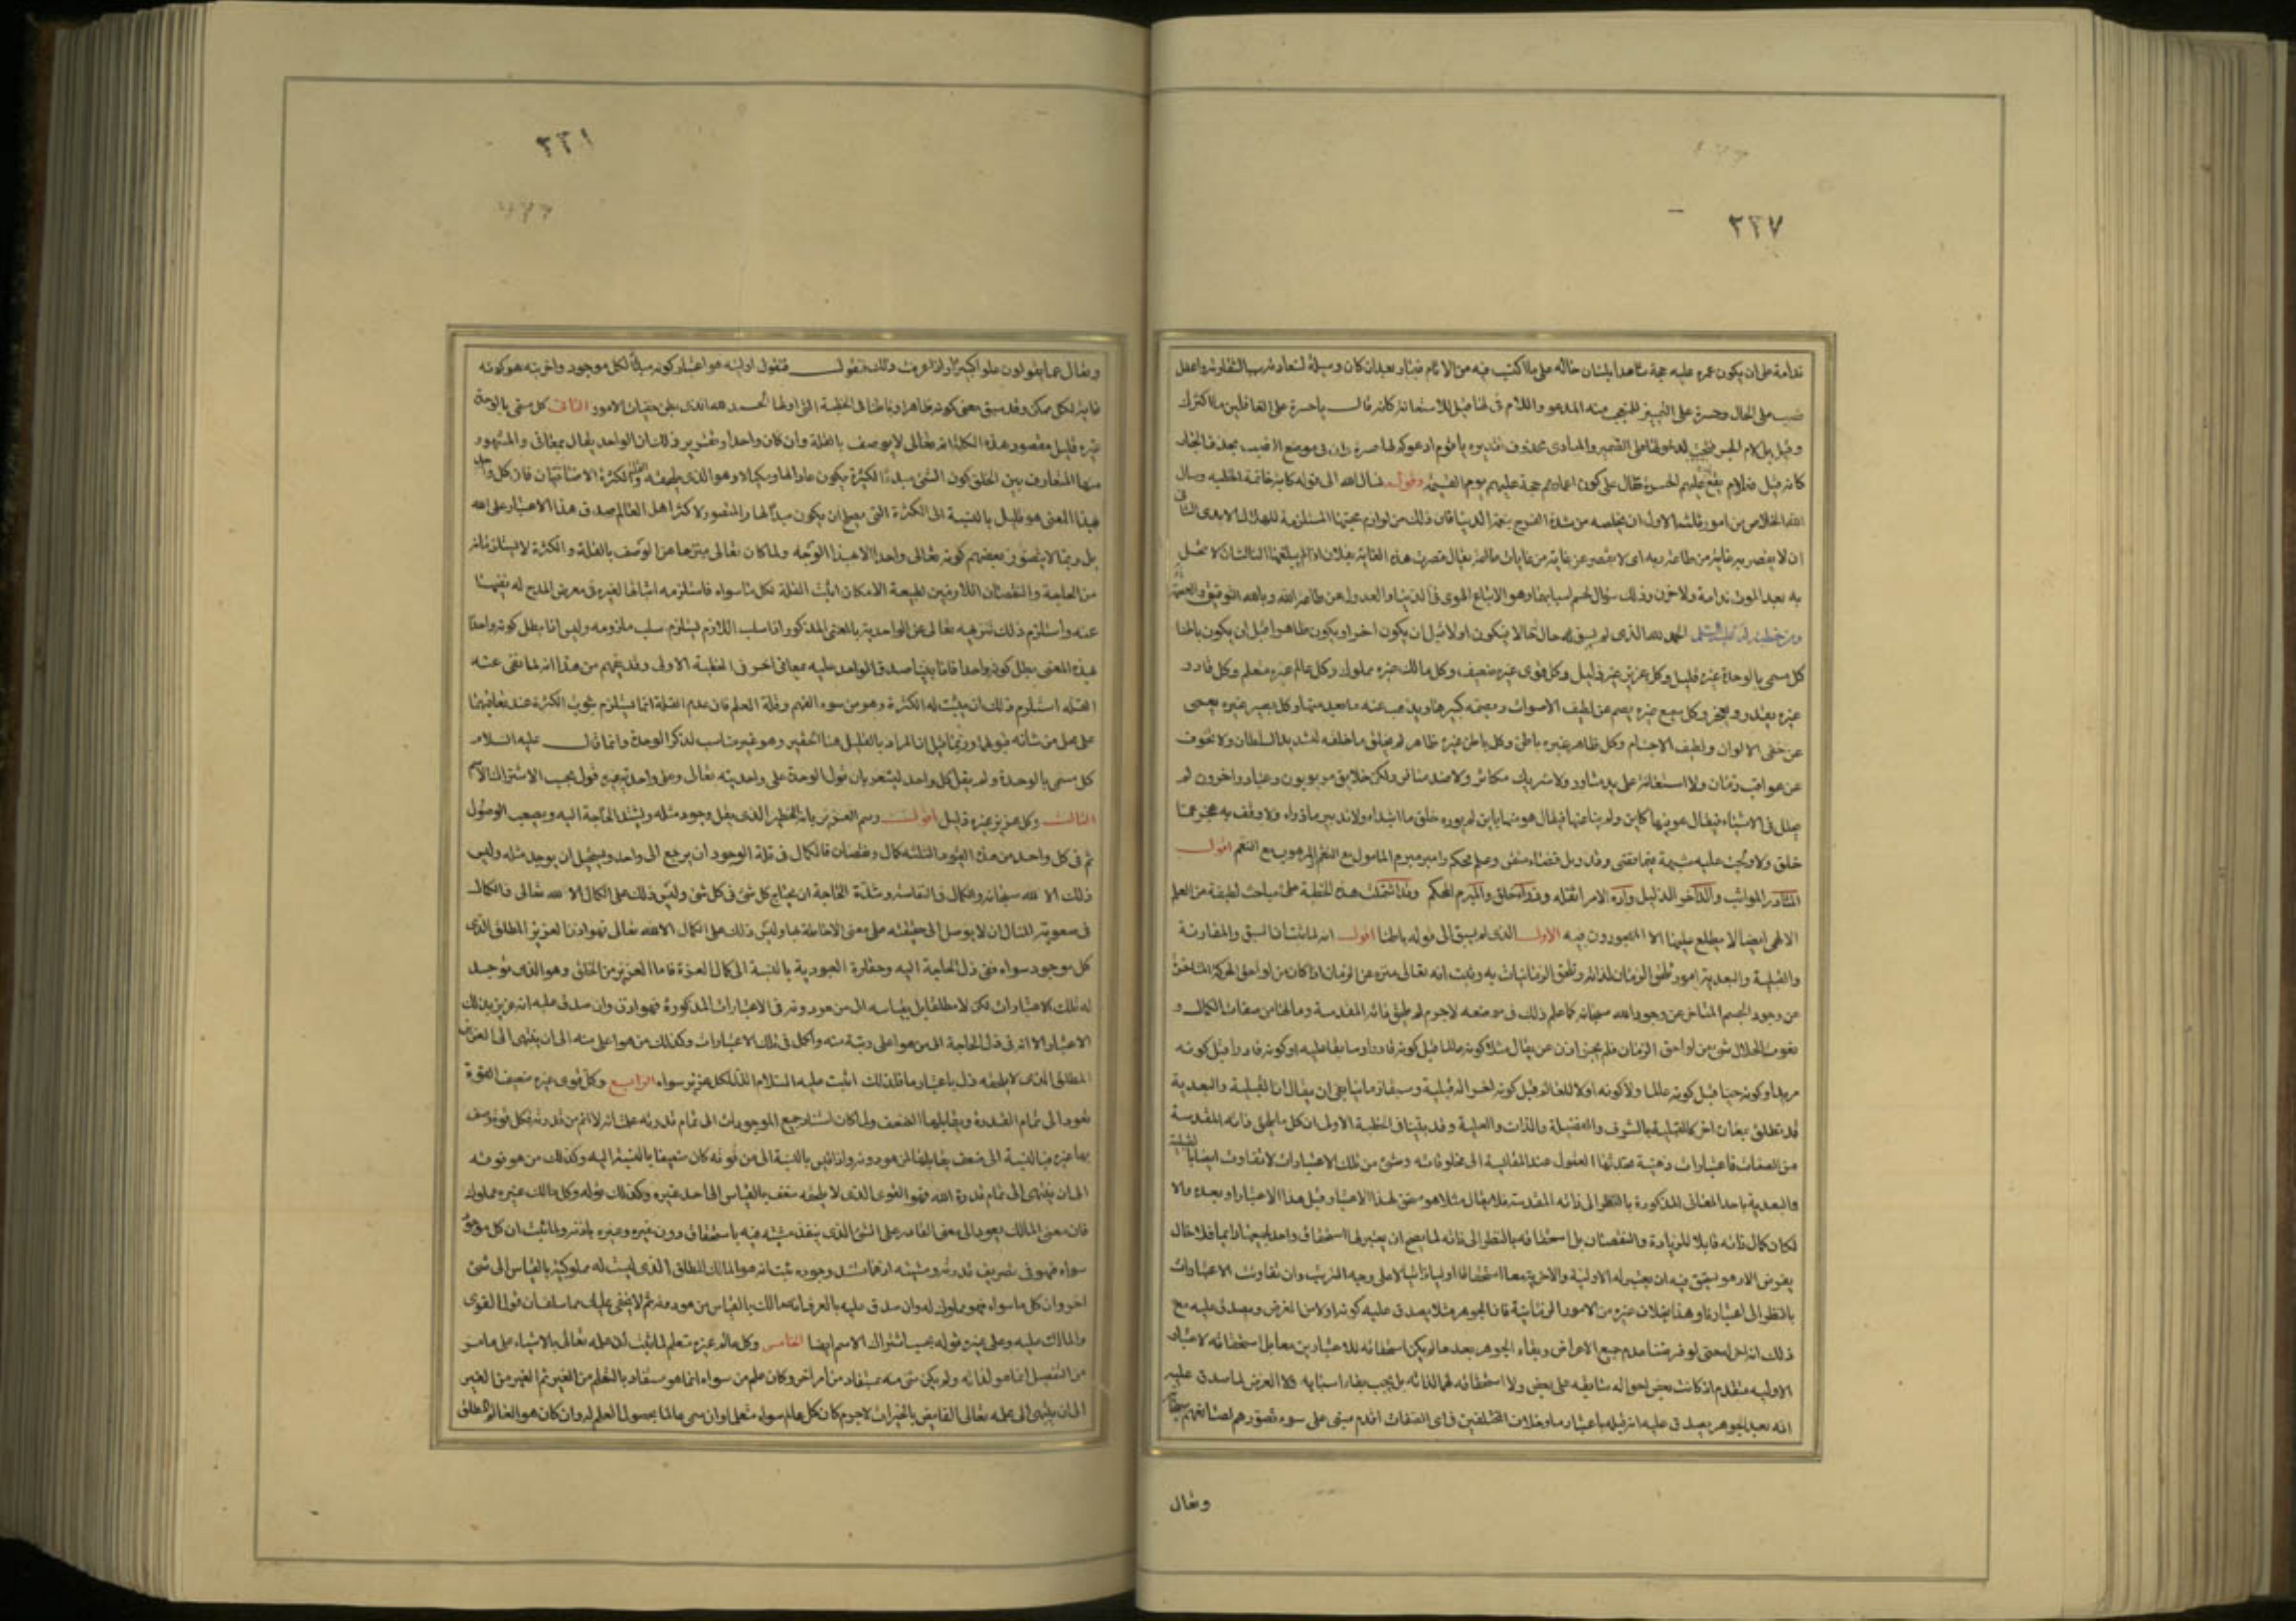 ٢٢٧
ندامة على ان يكون عمره عليه حجة شاهدا بلسان حاله على ما اكتسب فيه من الاثام فيناديه بعد ان كان وسيلة لسعادته الشقاوة واعمل
نصب على الحال وحسرة على التمييز للمتعجب منه المدعو واللام في لها قيل للاستغاثة كانه قال يا حسرة على الغافلين ما اكثرك
وقيل بل لام الجر فتحت لدخولها على الضمير والمنادى محذوف تقديره يا قوم ادعوكم لها حسرة وان في موضع النصب بحذف الجار
كانه قيل فعلام يقع عليهم الحسرة فقال على كون اعمارهم حجة عليهم يوم القيمة وقوله نسال الله الى قوله كابة خاتمة الخطبة وسال
الله الخلاص من امور ثلثة الاول ان يخلصه من شدة الفرح بنعمة الدنيا فان ذلك من لوازم محبتها المستلزمة للهلاك الابدى الثانى
ان لا يقصر به غاية من طاعة ربه اى لا يقصر عن غاية من غايات طاعته يقال قصرت هذه الغاية بفلان اذا لم يبلغها الثالث ان لا تحل
به بعد الموت ندامة ولا حزن وذلك سؤال لحسم اسبابهما وهو الاتباع الهوى في الدنيا والعدول عن طاعة الله وبالله التوفيق والعصمة
ومن خطبة له عليه السلم الحمد لله الذى لم يسبق له حال حالا فيكون اولا قبل ان يكون اخرا ويكون ظاهرا قبل ان يكون باطنا
كل مسمى بالوحدة غيره قليل وكل عزيز غيره ذليل وكل قوى غيره ضعيف وكل مالك غيره مملوك وكل عالم غيره متعلم وكل قادر
غيره يقدر ويعجز وكل سميع غيره يصم عن لطيف الاصوات ويصمه كبيرها ويذهب عنه ما بعد منها وكل بصير غيره يعمى
عن خفى الالوان ولطيف الاجسام وكل ظاهر غيره باطن وكل باطن غيره ظاهر لم يخلق ما خلقه لتشديد السلطان ولا تخوف
عن عواقب زمان ولا استعانة على ند مثاور ولا شريك مكاثر ولا ضد منافر ولكن خلايق مربوبون وعباد داخرون لم
يحلل في الاشياء فيقال هو فيها كاين ولم ينا عنها فيقال هو منها باين لم يوده خلق ما ابتداء ولا تدبير ما ذراء ولا وقف به عجز عما
خلق ولا ولجت عليه شبهة فيما قضى وقدر بل قضاء متقن وعلم محكم وامر مبرم المامول مع النقم المرهوب مع النعم اقول
المثاور المواثب والداخر الذليل واده الامر اثقله وذراء خلق والمبرم المحكم وقد اشتملت هذه الخطبة على مباحث لطيفة من العلم
الالهى ايضا لا يطلع عليها الا المتبحرون فيه الاول الذى لم يسبق الى قوله باطنا اقول انه لما ثبت ان السبق والمقارنة
والقبلية والبعدية امور تلحق الزمان لذاته وتلحق الزمانيات به وثبت انه تعالى منزه عن الزمان اذا كان من لواحق الحركة المتاخرة
عن وجود الجسم المتاخر عن وجود الله سبحانه كما علم ذلك في موضعه لاجرم لم يلحق ذاته المقدسة وما لها من صفات الكمال و
نعوت الجلال شئ من لواحق الزمان فلم يجز اذن ان يقال مثلا كونه عالما قبل كونه قادرا وسابقا عليه او كونه قادرا قبل كونه
مريدا وكونه حيا قبل كونه عالما ولا كونه اولا للعالم قبل كونه اخرا له قبلية وسبقا زمانيا بقى ان يقال ان القبلية والبعدية
قد تطلق بمعان اخر كالقبلية بالشرف والفضيلة والذات والعلية وقد بينا في الخطبة الاولى ان كل ما يلحق ذاته المقدسة
من الصفات فاعتبارات ذهنية تحدثها العقول عند المقايسة الى مخلوقاته وشئ من تلك الاعتبارات لا تتفاوت ايضا بالقبلية
والبعدية باحد المعاني المذكورة بالنظر الى ذاته المقدسة فلا يقال مثلا هو مستحق لهذا الاعتبار قبل هذا الاعتبار او بعده والا
لكان كمال ذاته قابلا للزيادة والنقصان بل استحقاقه بالنظر الى ذاته لما يصح ان يعتبر لها استحقاق واحد لجميعها دايما فلا حال
يفرض الا وهو يستحق فيه ان يعتبر له الاولية والاخرية معا استحقاقا اوليا ذاتيا لا على وجه الترتيب وان تفاوتت الاعتبارات
بالنظر الى اعتبارنا وهذا بخلاف غيره من الامور الزمانية فان الجوهر مثلا يصدق عليه كونه اولا من العرض ويصدق عليه مع
ذلك انه اخر له حتى لو فرضنا عدم جميع الاعراض وبقاء الجوهر بعدها لم يكن استحقاقه للاعتبارين معا بل استحقاقه لاعتبار
الاولية متقدم اذ كانت بعض احواله سابقة على بعض ولا استحقاقه لهما لذاته بل بحسب بقاء اسبابه ولا العرض لما صدق عليه
انه بعد الجوهر يصدق عليه انه قبله باعتبار ما وخلاف المختلفين في اى الصفات اقدم مبنى على سوء تصورهم لصانعهم سبحانه
وتعالى
٢٢١
وتعالى عما يقولون علوا كبيرا واذا عرفت ذلك فنقول فنقول اوليته هو اعتبار كونه مبدأ لكل موجود واخريته هو كونه
غاية لكل ممكن وقد سبق معنى كونه ظاهرا وباطنا في الخطبة التى اولها الحمد لله الذى بطن خفيات الامور الثاني كل مسمى بالوحدة
غيره قليل مقصود هذه الكلمة انه تعالى لا يوصف بالقلة وان كان واحدا وتقرير ذلك ان الواحد يقال بمعاني والمشهور
منها المتعارف بين الخلق كون الشئ مبدءا لكثرة يكون عادا لها ومكيالا وهو الذى يلحقه القلة والكثرة الاضافيتان فان كل واحد
بهذا المعنى هو قليل بالنسبة الى الكثرة التى يصلح ان يكون مبدأ لها والمتصور لاكثر اهل العالم صدق هذا الاعتبار على الله
بل ربما لا يتصور بعضهم كونه تعالى واحدا الا بهذا الوجه ولما كان تعالى منزها عن الوصف بالقلة والكثرة لاستلزامهما
من الحاجة والنقصان اللازمين لطبيعة الامكان اثبت القلة لكل ما سواه فاستلزم اثباتها لغيره في معرض المدح له نفيها
عنه واستلزم ذلك تنزيهه تعالى عن الواحدية بالمعنى المذكور اذ سلب اللازم يستلزم سلب ملزومه وليس اذا بطل كونه واحدا
بهذه المعنى بطل كونه واحدا فانا بينا صدق الواحد عليه بمعاني اخر في الخطبة الاولى وقد يفهم من هذا انه لما نفى عنه
القلة استلزم ذلك ان يثبت له الكثرة وهو من سوء الفهم وقلة العلم فان عدم القلة انما يستلزم ثبوت الكثرة عند تعاقبهما
على محل من شأنه قبولهما وربما قيل ان المراد بالقليل هنا الحقير وهو غير مناسب لذكر الوحدة وانما قال عليه السلام
كل مسمى بالوحدة ولم يقل كل واحد ليشعر بان قول الوحدة على واحديته تعالى وعلى واحدية غيره قول بحسب الاشتراك الاسم
الثالث وكل عزيز غيره ذليل اقول رسم العزيز بانه الخطير الذى يقل وجود مثله ويشتد الحاجة اليه ويصعب الوصول
ثم في كل واحد من هذه القيود الثلثة كمال ونقصان فالكمال في قلة الوجود ان يرجع الى واحد ويستحيل ان يوجد مثله وليس
ذلك الا لله سبحانه والكمال في النفاسة وشدة الحاجة ان يحتاج كل شئ في كل شئ وليس ذلك على الكمال الا لله تعالى فالكمال
في صعوبة المنال ان لا يوصل الى حقيقته على معنى الاحاطة بها وليس ذلك على الكمال الا لله تعالى فهو اذن العزيز المطلق الذى
كل موجود سواه ففى ذل الحاجة اليه وحقارة العبودية بالنسبة الى كمال العزة فاما العزيز من الخلق وهو الذى توجد
له تلك الاعتبارات لكن لا مطلقا بل بقياسه الى من هو دونه في الاعتبارات المذكورة فهو اذن وان صدق عليه انه عزيز بذلك
الاعتبار الا انه في ذل الحاجة الى من هو اعلى رتبة منه واكمل في تلك الاعتبارات وكذلك من هو اعلى منه الى ان ينتهى الى العزيز
المطلق الذى لا يلحقه ذل باعتبار ما فلذلك اثبت عليه السلام الذل لكل عزيز سواه الرابع وكل قوى غيره ضعيف القوة
تعود الى تمام القدرة ويقابلها الضعف ولما كان استناد جميع الموجودات الى تمام قدرته علمت انه لا اتم من قدرته فكل قوة وصف
بها غيره فبالنسبة الى ضعف يقابلها لمن هو دونه واذا قيس بالنسبة الى من فوقه كان ضعيفا بالنسبة اليه وكذلك من هو فوقه
الى ان ينتهى الى تمام قدرة الله فهو القوى الذى لا يلحقه ضعف بالقياس الى احد غيره وكذلك قوله وكل مالك غيره مملوك
فان معنى المالك يعود الى معنى القادر على الشئ الذى ينفذ مشيته فيه باستحقاق دون غيره وغيره باذنه ولما ثبت ان كل موجود
سواه فهو في تصريف قدرته ومشيته اذ هما مستند وجوده ثبت انه هو المالك المطلق الذى ليس له مملوكية بالقياس الى شئ
اخر وان كل ما سواه فهو مملوك له وان صدق عليه بالعرف انه مالك بالقياس من هو دونه ثم لا يخفى عليك مما سلف ان قول القوى
والمالك عليه وعلى غيره قوله بحسب اشتراك الاسم ايضا الخامس وكل عالم غيره متعلم لما ثبت ان علمه تعالى بالاشياء على ما مر
من التفصيل انما هو لذاته ولم يكن شئ منه بمستفاد من امر اخر وكان علم من سواه انما هو مستفاد بالتعلم من الغير ثم الغير من الغير
الى ان ينتهى الى علمه تعالى الفايض بالخيرات لاجرم كان كل عالم سواه متعلما وان سمى عالما بحصول العلم له وان كان هو العالم المطلق